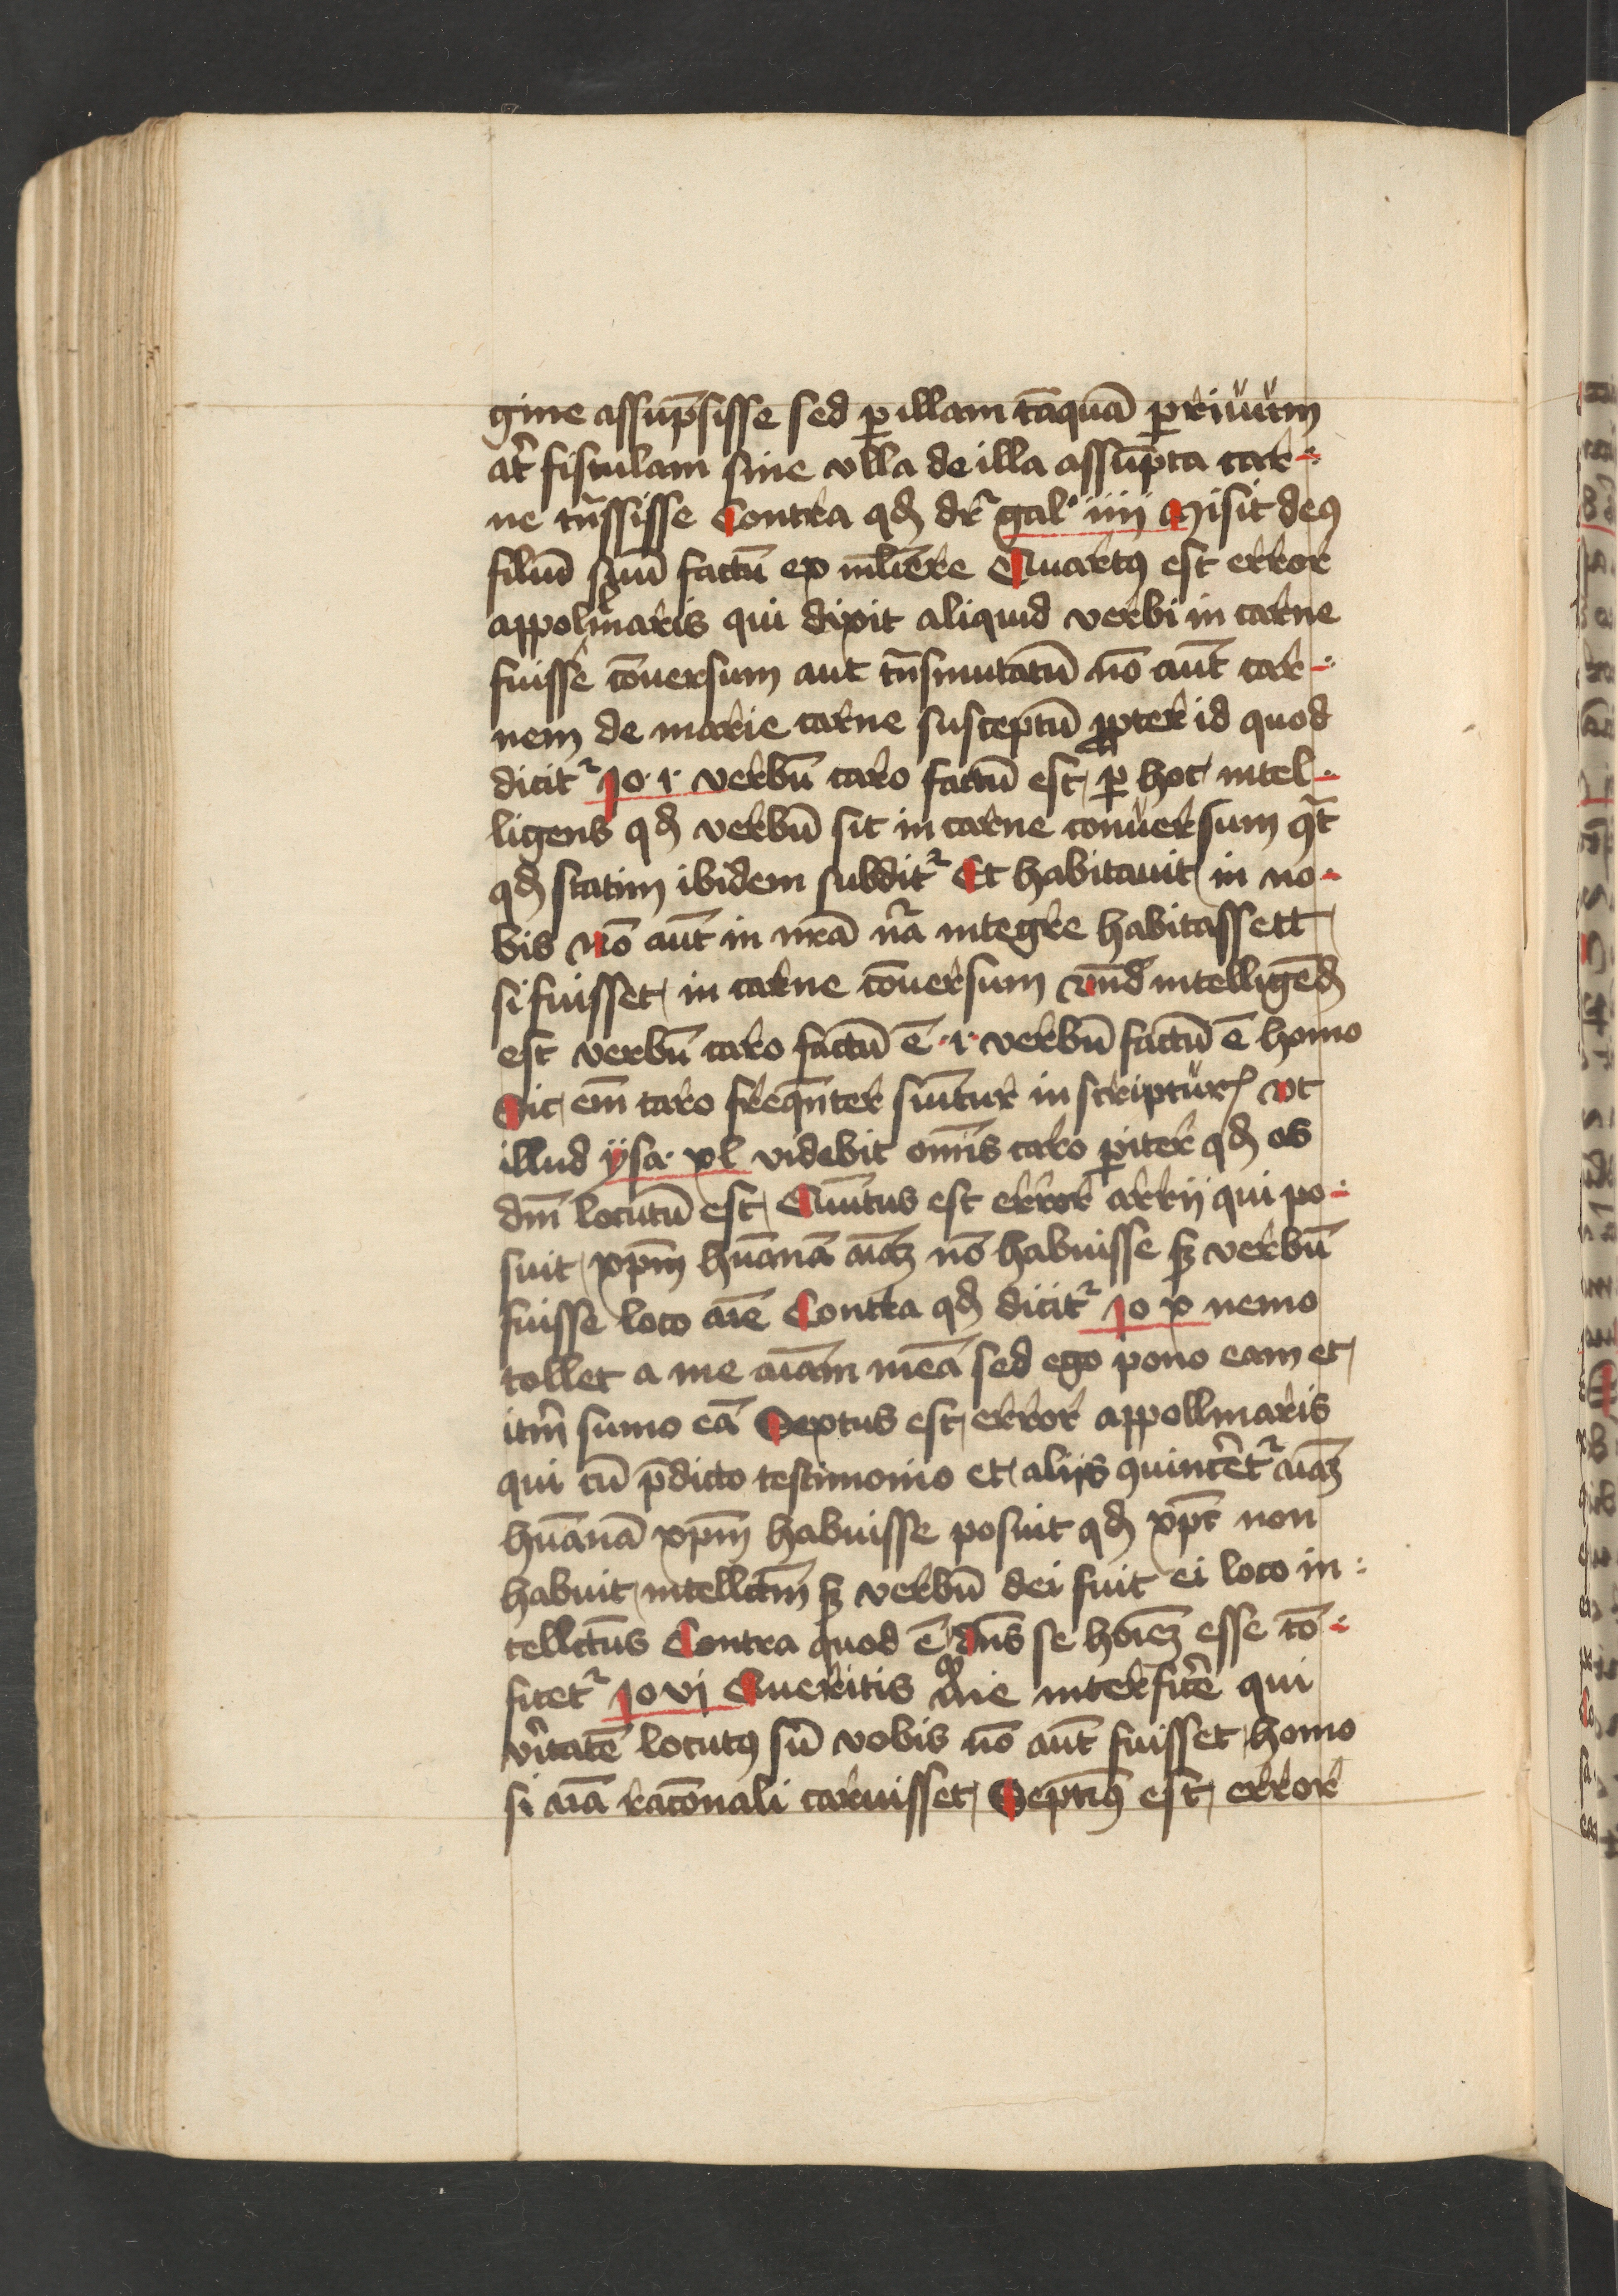 gine assūpsisse sed ꝑ illam tāquā ꝑ riuūm
at̄ fistulam sine vlla de illa assūpta car
ne tn̄sisse Contra qď dr̄ gal iiij Misit deꝰ
filiū suū factū ex mĺiere Quartꝰ est error
appolinaris qui dixit aliquid verbi in carne
fuisse cōuersum aut tn̄smutatū nō aūt car
nem de marie carne susceptū ꝓpter id quod
dicitᷣ Jo · 1 · verbū caro factū est ꝑ hoc intel
ligens qď verbū sit in carne conuersum
qď statim ibidem subditᷣ Et habitauit in no
bis nō aūt in nrā nā integre habitassett
si fuisset in carne cōuersum vnd̄ intelligēď
est verbū caro factū ē · i · verbū factū ē homo
Sic em̄ caro freqn̄ter sumitur in scripturꝭ vt
illud ysa · xl videbit om̄is caro ꝑiter qď os
dm̄ locutū est Quītus est error arrij qui po
suit xp̄m hūanā aīaꝫ nō habuisse sꝫ verbū
fuisse loco aīe Contra qď dicitᷣ Jo x nemo
tollet a me aīam meā sed ego pono eam et
itm̄ sumo eā Sextus est error appollinaris
qui cū p̄dicto testimonio et aliis ꝯuincēt᷑ aīaꝫ
hūanā xp̄m habuisse posuit qď xp̄c non
habuit intellc̄tm sꝫ verbū dei fuit ei loco in
tellc̄tus Contra quod ē dn̄s se hoīeꝫ esse cō
fitetᷣ Jo vj Queritis me interficē qui
v̄itatē locutꝰ sū vobis nō aūt fuisset homo
si aīa rac̄onali caruisset Septīꝰ est error